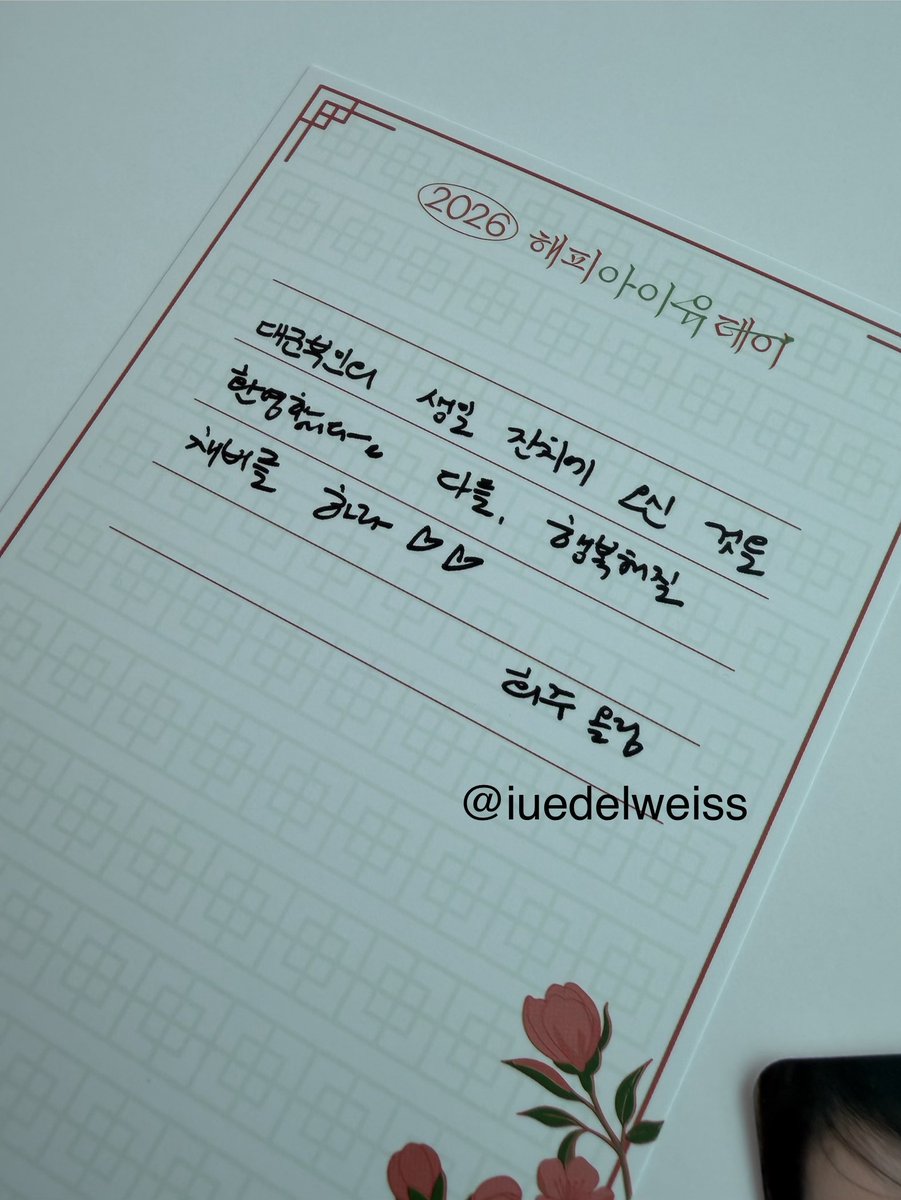 2026 해피아이유데이
대군부인의 생일 잔치에 오신 것들
환영합니다. 다들, 행복해질
채비를 하라 ♡♡
희주 올림
@iuedelweiss